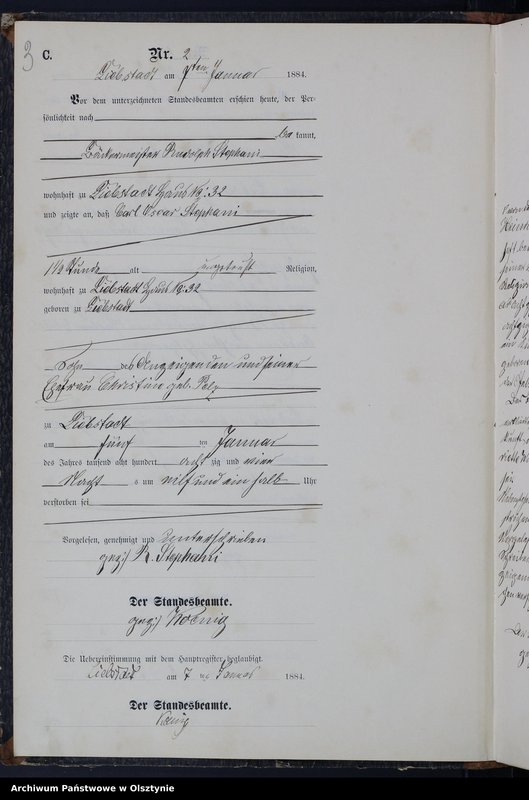 3
C.
Nr. 2
Liebstadt am 7ten Januar 1884.
Vor dem unterzeichneten Standesbeamten erschien heute, der Per-
sönlichkeit nach
be kannt,
Bäckermeister Rudolph Stephani
wohnhaft zu Liebstadt Haus № 32
und zeigte an, daß Carl Oscar Stephani
1½ Stunde alt, ungetauft Religion,
wohnhaft zu Liebstadt Haus № 32
geboren zu Liebstadt
Sohn des Anzeigenden und seiner
Ehefrau Christine geb. Pelz
zu Liebstadt
am fünf ten Januar
des Jahres tausend acht hundert acht zig und vier
Nacht s um elf und ein halb Uhr
verstorben sei
Vorgelesen, genehmigt und unterschrieben
gez:) R. Stephani
Der Standesbeamte.
gez:) Koenig
Die Uebereinstimmung mit dem Hauptregister beglaubigt.
Liebstadt am 7 ten Januar 1884.
Der Standesbeamte.
Koenig
Archiwum Państwowe w Olsztynie